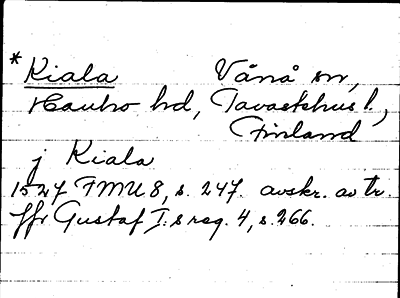 *Kiala Vånå sn,
Hauho hd, Tavastehus l.,
Finland
j Kiala
1527 FMU 8, s. 247. avskr. av tr.
ffr Gustaf I:s reg. 4, s. 266.